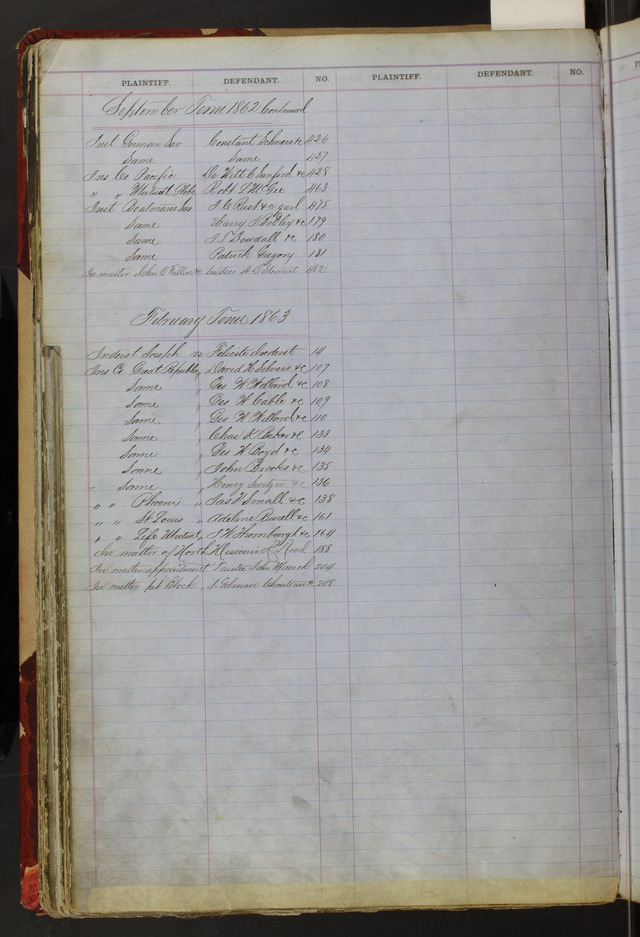 PLAINTIFF. DEFENDANT. NO. PLAINTIFF. DEFENDANT. NO.
September Term 1862 Continued
Inst German Sav Constant &c 426
Same Same 427
Ins Co Pacific De Witt C Sanford &c 428
" " Mutual Robt S McGee 463
Inst Boatmans Sav 475
Same Harry &c 179
Same Dowdall &c 180
Same Patrick Gregory 181
In matter John O Fallon 482
February Term 1863
Inderst Joseph vs Felicite Inderst 14
Ins Co Great Republic " David H Silvers &c 107
Same " Geo W Willard &c 108
Same " Geo W Cable &c 109
Same " Geo W Willard &c 110
Same " Chas K Baker &c 133
Same " Geo W Boyd &c 134
Same " John Brooks &c 135
Same " Henry &c 136
" " Phoenix " Jas Small &c 138
" " St Louis " Adeline Russell &c 161
" " Life Mutual " Thornburgh &c 164
In matter of North Missouri R Road 188
In matter appointment Trustee John 204
In matter Block 208